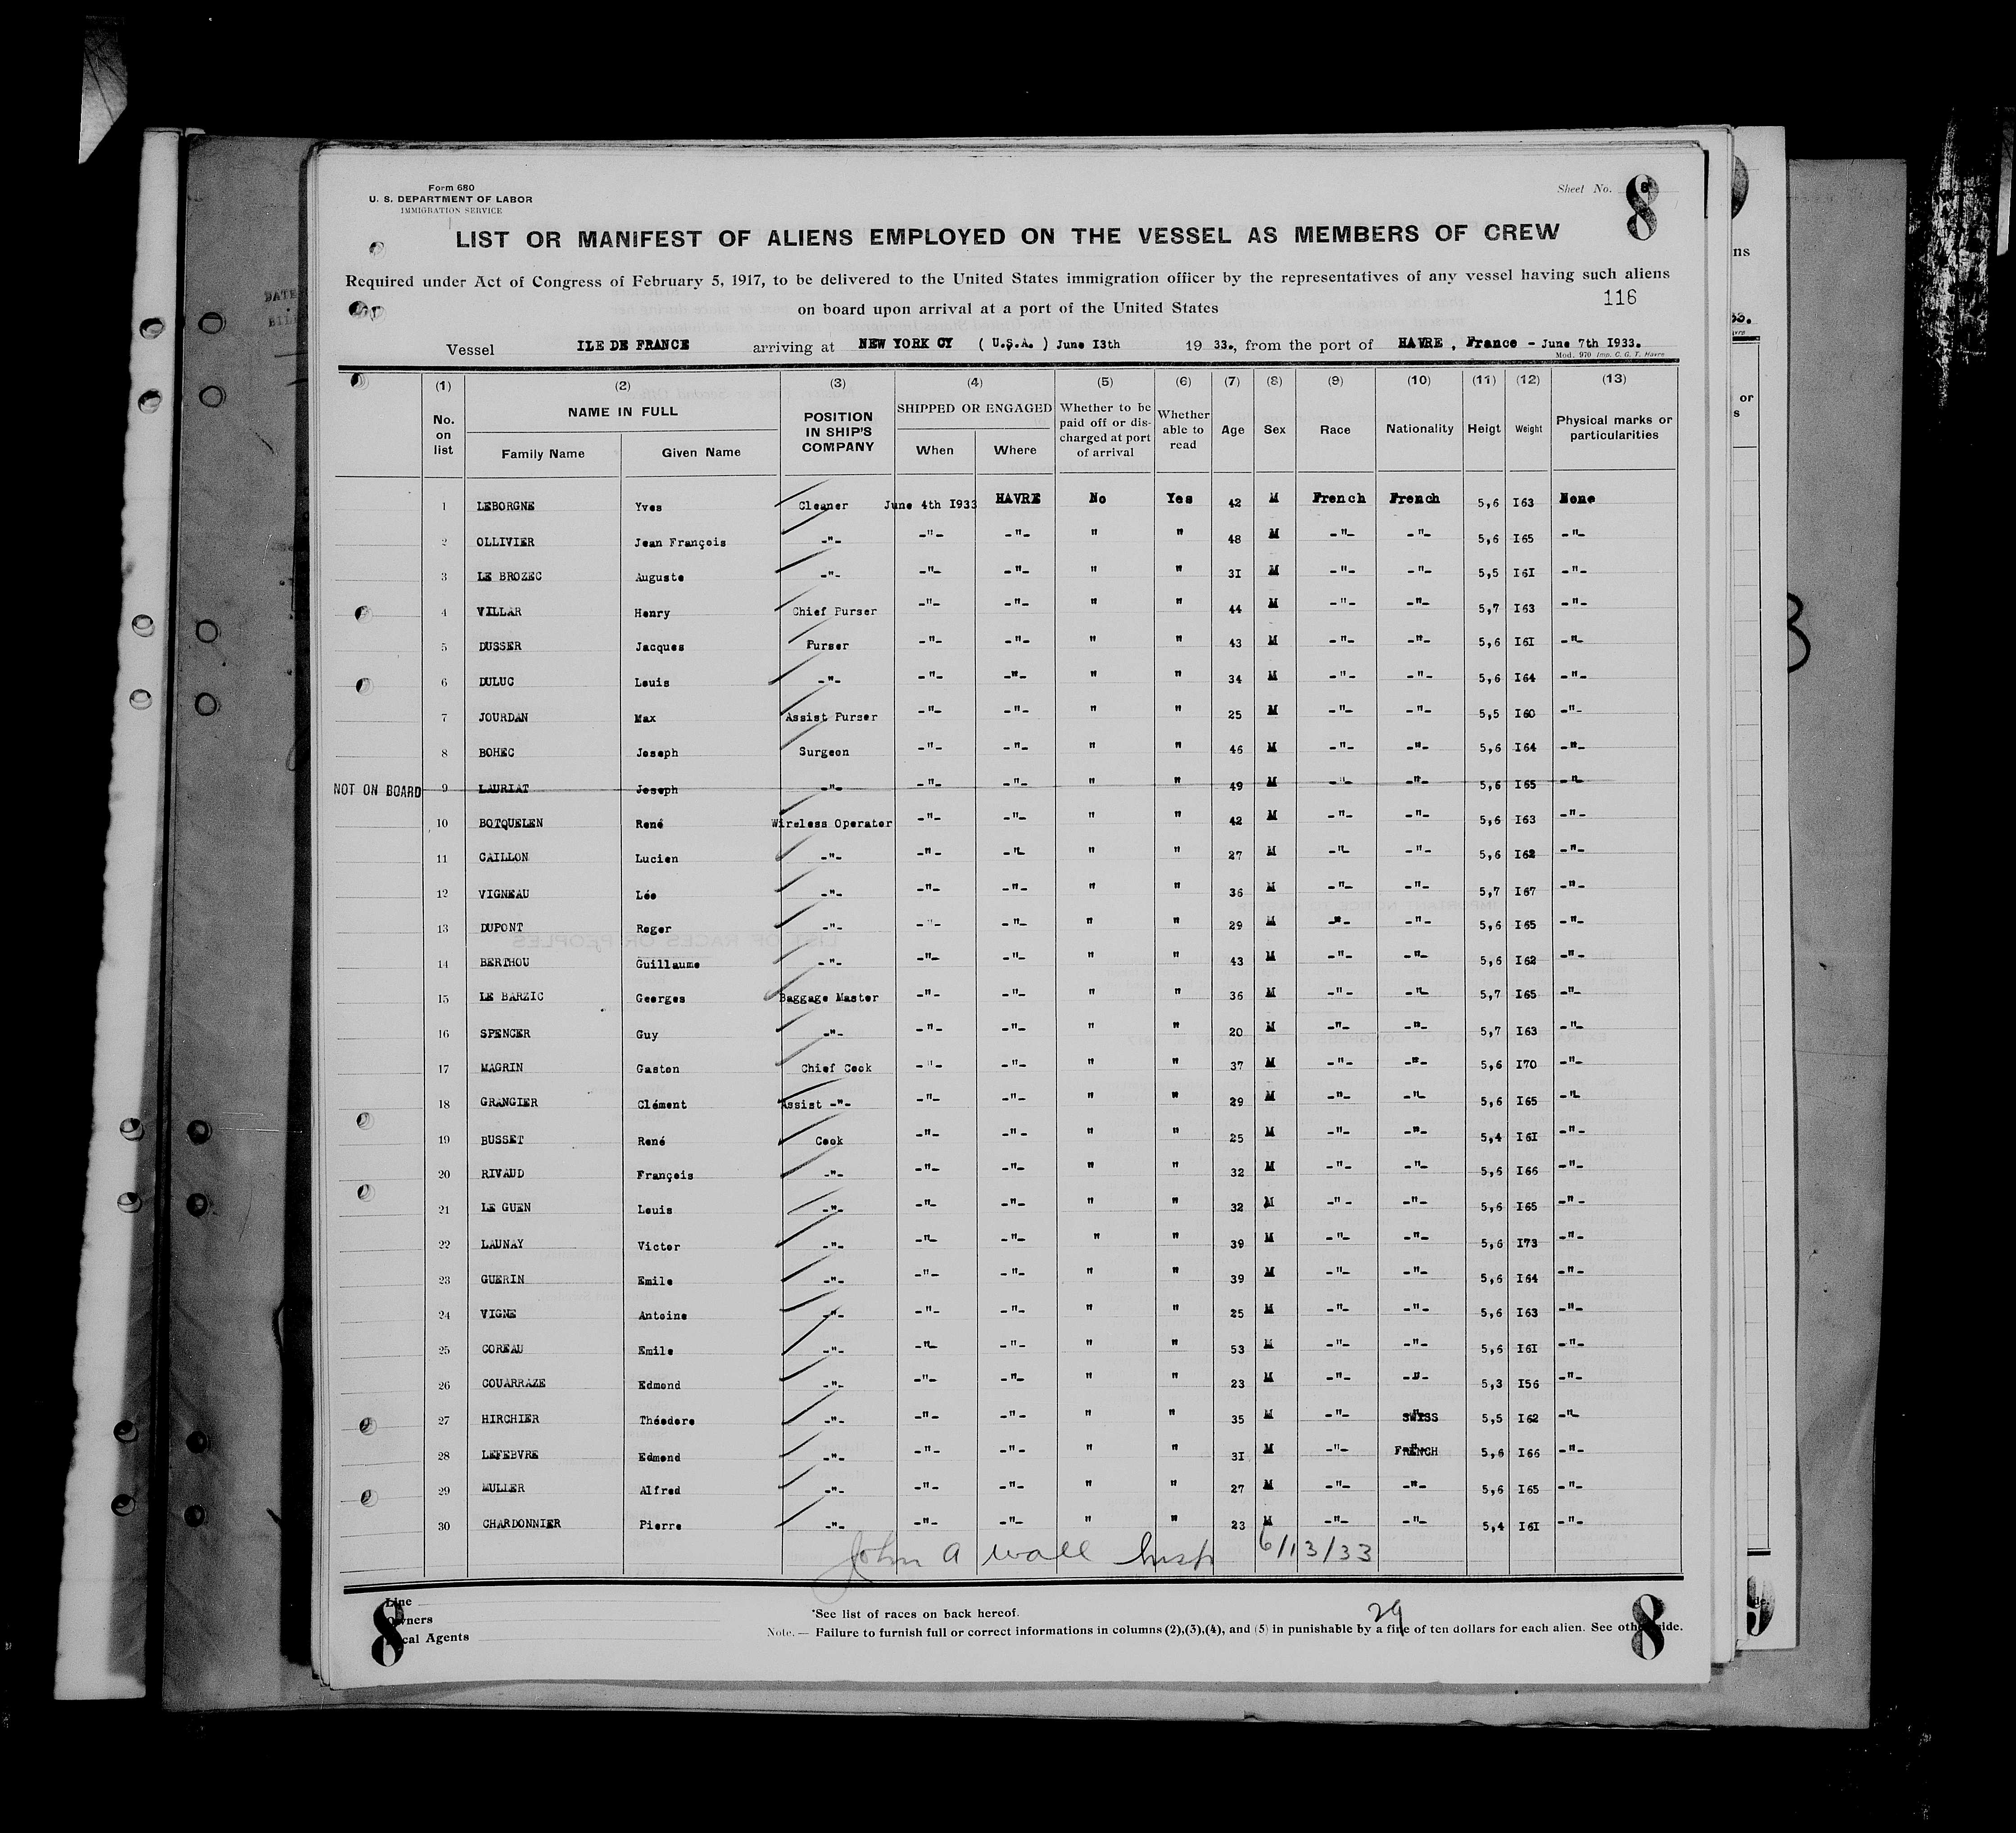 Form 680
U. S. DEPARTMENT OF LABOR
IMMIGRATION SERVICE
Sheet No. 8
8
LIST OR MANIFEST OF ALIENS EMPLOYED ON THE VESSEL AS MEMBERS OF CREW
Required under Act of Congress of February 5, 1917, to be delivered to the United States immigration officer by the representatives of any vessel having such aliens
on board upon arrival at a port of the United States
116
Vessel ILE DE FRANCE arriving at NEW YORK CY ( U.S.A. ) June I3th 19 33., from the port of HAVRE , France - June 7th I933.
Mod. 970 Imp. C. G. T. Havre
(1) (2) (3) (4) (5) (6) (7) (8) (9) (10) (11) (12) (13)
No. on list NAME IN FULL Family Name Given Name POSITION IN SHIP'S COMPANY SHIPPED OR ENGAGED When Where Whether to be paid off or discharged at port of arrival Whether able to read Age Sex Race Nationality Heigt Weight Physical marks or particularities
1 LEBORGNE Yves Cleaner June 4th I933 HAVRE No Yes 42 M French French 5,6 I63 None
2 OLLIVIER Jean François -"- -"- -"- " " 48 M -"- -"- 5,6 I65 -"-
3 LE BROZEC Auguste -"- -"- -"- " " 3I M -"- -"- 5,5 I6I -"-
4 VILLAR Henry Chief Purser -"- -"- " " 44 M -"- -"- 5,7 I63 -"-
5 DUSSER Jacques Purser -"- -"- " " 43 M -"- -"- 5,6 I6I -"-
6 DULUC Louis -"- -"- -"- " " 34 M -"- -"- 5,6 I64 -"-
7 JOURDAN Max Assist Purser -"- -"- " " 25 M -"- -"- 5,5 I60 -"-
8 BOHEC Joseph Surgeon -"- -"- " " 46 M -"- -"- 5,6 I64 -"-
NOT ON BOARD 9 LAURIAT Joseph -"- -"- -"- " " 49 M -"- -"- 5,6 I65 -"-
10 BOTQUELEN René Wireless Operator -"- -"- " " 42 M -"- -"- 5,6 I63 -"-
11 CAILLON Lucien -"- -"- -"- " " 27 M -"- -"- 5,6 I62 -"-
12 VIGNEAU Léo -"- -"- -"- " " 36 M -"- -"- 5,7 I67 -"-
13 DUPONT Roger -"- -"- -"- " " 29 M -"- -"- 5,6 I65 -"-
14 BERTHOU Guillaume -"- -"- -"- " " 43 M -"- -"- 5,6 I62 -"-
15 LE BARZIC Georges Baggage Master -"- -"- " " 36 M -"- -"- 5,7 I65 -"-
16 SPENCER Guy -"- -"- -"- " " 20 M -"- -"- 5,7 I63 -"-
17 MAGRIN Gaston Chief Cook -"- -"- " " 37 M -"- -"- 5,6 I70 -"-
18 GRANGIER Clément Assist -"- -"- -"- " " 29 M -"- -"- 5,6 I65 -"-
19 BUSSET René Cook -"- -"- " " 25 M -"- -"- 5,4 I6I -"-
20 RIVAUD François -"- -"- -"- " " 32 M -"- -"- 5,6 I66 -"-
21 LE GUEN Louis -"- -"- -"- " " 32 M -"- -"- 5,6 I65 -"-
22 LAUNAY Victor -"- -"- -"- " " 39 M -"- -"- 5,6 I73 -"-
23 GUERIN Emile -"- -"- -"- " " 39 M -"- -"- 5,6 I64 -"-
24 VIGNE Antoine -"- -"- -"- " " 25 M -"- -"- 5,6 I63 -"-
25 COREAU Emile -"- -"- -"- " " 53 M -"- -"- 5,6 I6I -"-
26 COUARRAZE Edmond -"- -"- -"- " " 23 M -"- -"- 5,3 I56 -"-
27 HIRCHIER Théodore -"- -"- -"- " " 35 M -"- SWISS 5,5 I62 -"-
28 LEFEBVRE Edmond -"- -"- -"- " " 3I M -"- FRENCH 5,6 I66 -"-
29 MULLER Alfred -"- -"- -"- " " 27 M -"- -"- 5,6 I65 -"-
30 CHARDONNIER Pierre -"- -"- -"- " " 23 M -"- -"- 5,4 I6I -"-
John A Wall Insp 6/13/33
Line
Owners
Local Agents
8
*See list of races on back hereof.
29
Note. — Failure to furnish full or correct informations in columns (2),(3),(4), and (5) in punishable by a fine of ten dollars for each alien. See other side.
8